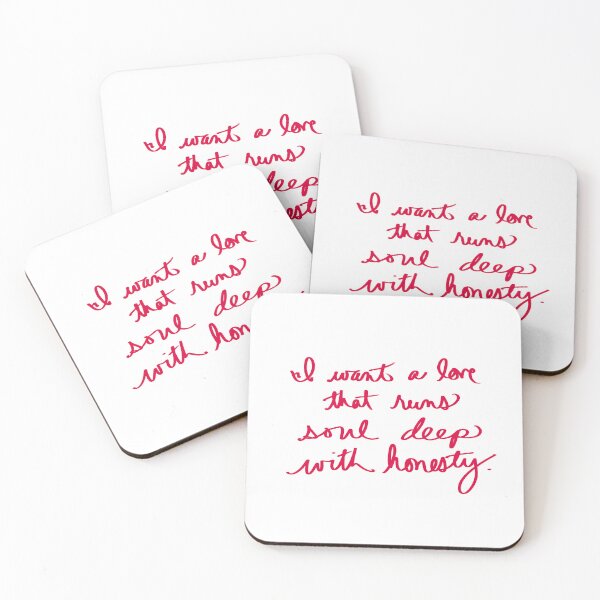 I want a love
that runs
deep
I want a love
that runs
soul deep
with honesty.
I want a love
that runs
soul deep
with
I want a love
that runs
soul deep
with honesty.